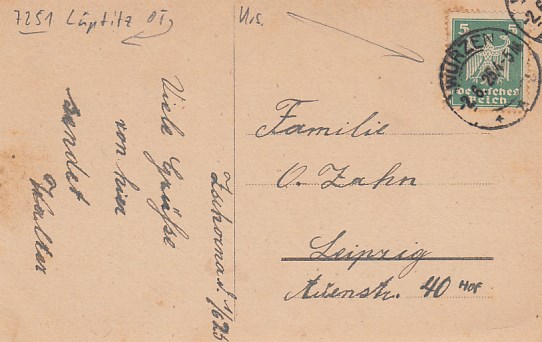 7251 Lüptitz OT,
Viele Grüße
von hier
sendet
Walter
5 5
Deutsches
Reich
WURZEN
Familie
O. Zahn
Leipzig
Auenstr. 40 HOF